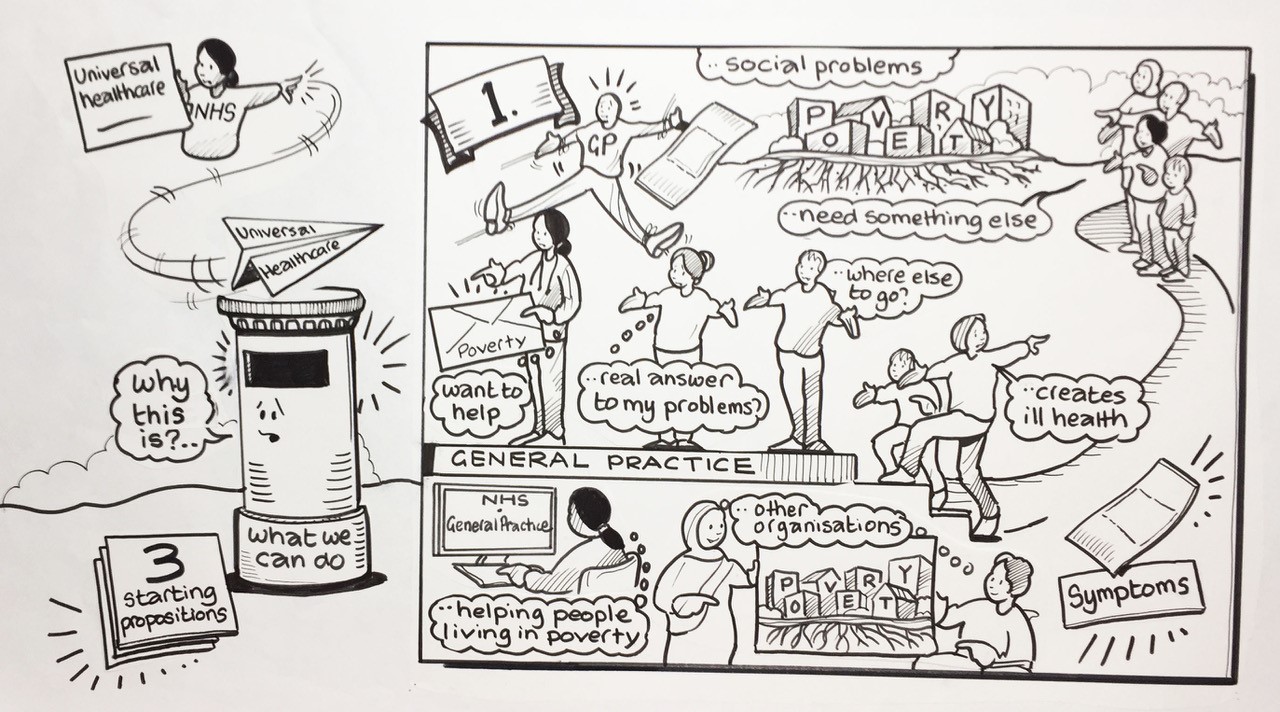 Universal
healthcare
NHS
Universal
Healthcare
why
this
is?..
what we
can do
3
starting
propositions
1.
GP
..social problems
POVERTY
..need something else
..where else
to go?
Poverty
want to
help
..real answer
to my problems?
..creates
ill health
GENERAL PRACTICE
NHS
General Practice
..other
organisations
POVERTY
..helping people
living in poverty
Symptoms